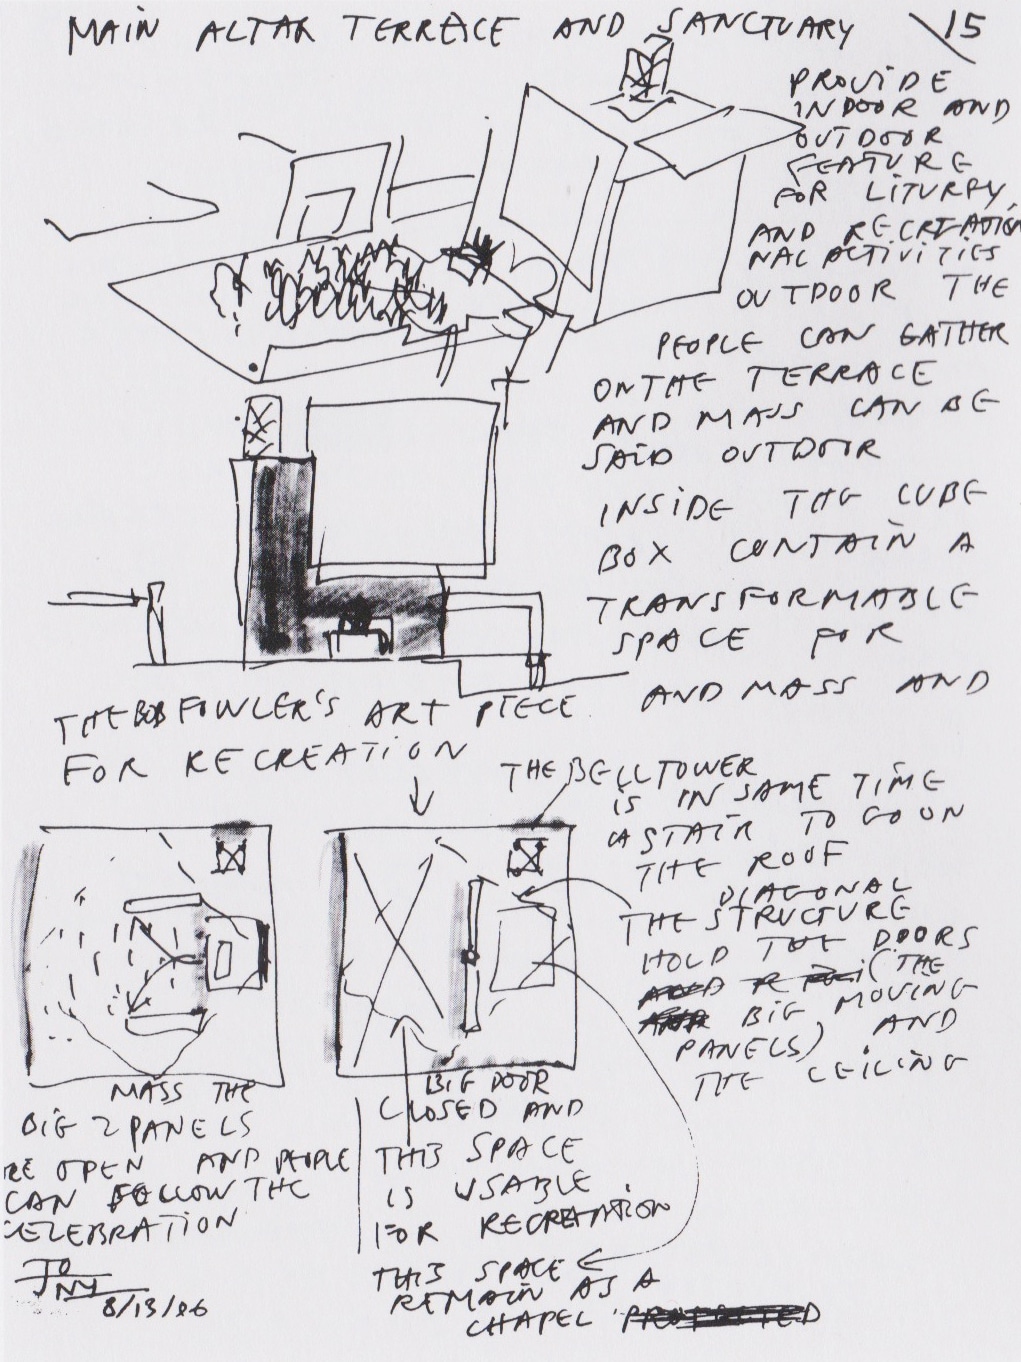 MAIN ALTAR TERRACE AND SANCTUARY
15
PROVIDE
INDOOR AND
OUTDOOR
FEATURE
FOR LITURGY,
AND RECREATIO
NAL ACTIVITIES
OUTDOOR THE
PEOPLE CAN GATHER
ON THE TERRACE
AND MASS CAN BE
SAID OUTDOOR
INSIDE THE CUBE
BOX CONTAIN A
TRANSFORMABLE
SPACE FOR
AND MASS AND
THE BOB FOWLER'S ART PIECE
FOR RECREATION
THE BELLTOWER
IS IN SAME TIME
A STAIR TO GO ON
THE ROOF
DIAGONAL
THE STRUCTURE
HOLD THE DOORS
(THE
BIG MOVING
PANELS) AND
THE CEILING
MASS THE
BIG 2 PANELS
RE OPEN AND PEOPLE
CAN FOLLOW THE
CELEBRATION
TO
NY
8/13/86
BIG DOOR
CLOSED AND
THIS SPACE
IS USABLE
FOR RECREATION
THIS SPACE
REMAIN AS A
CHAPEL